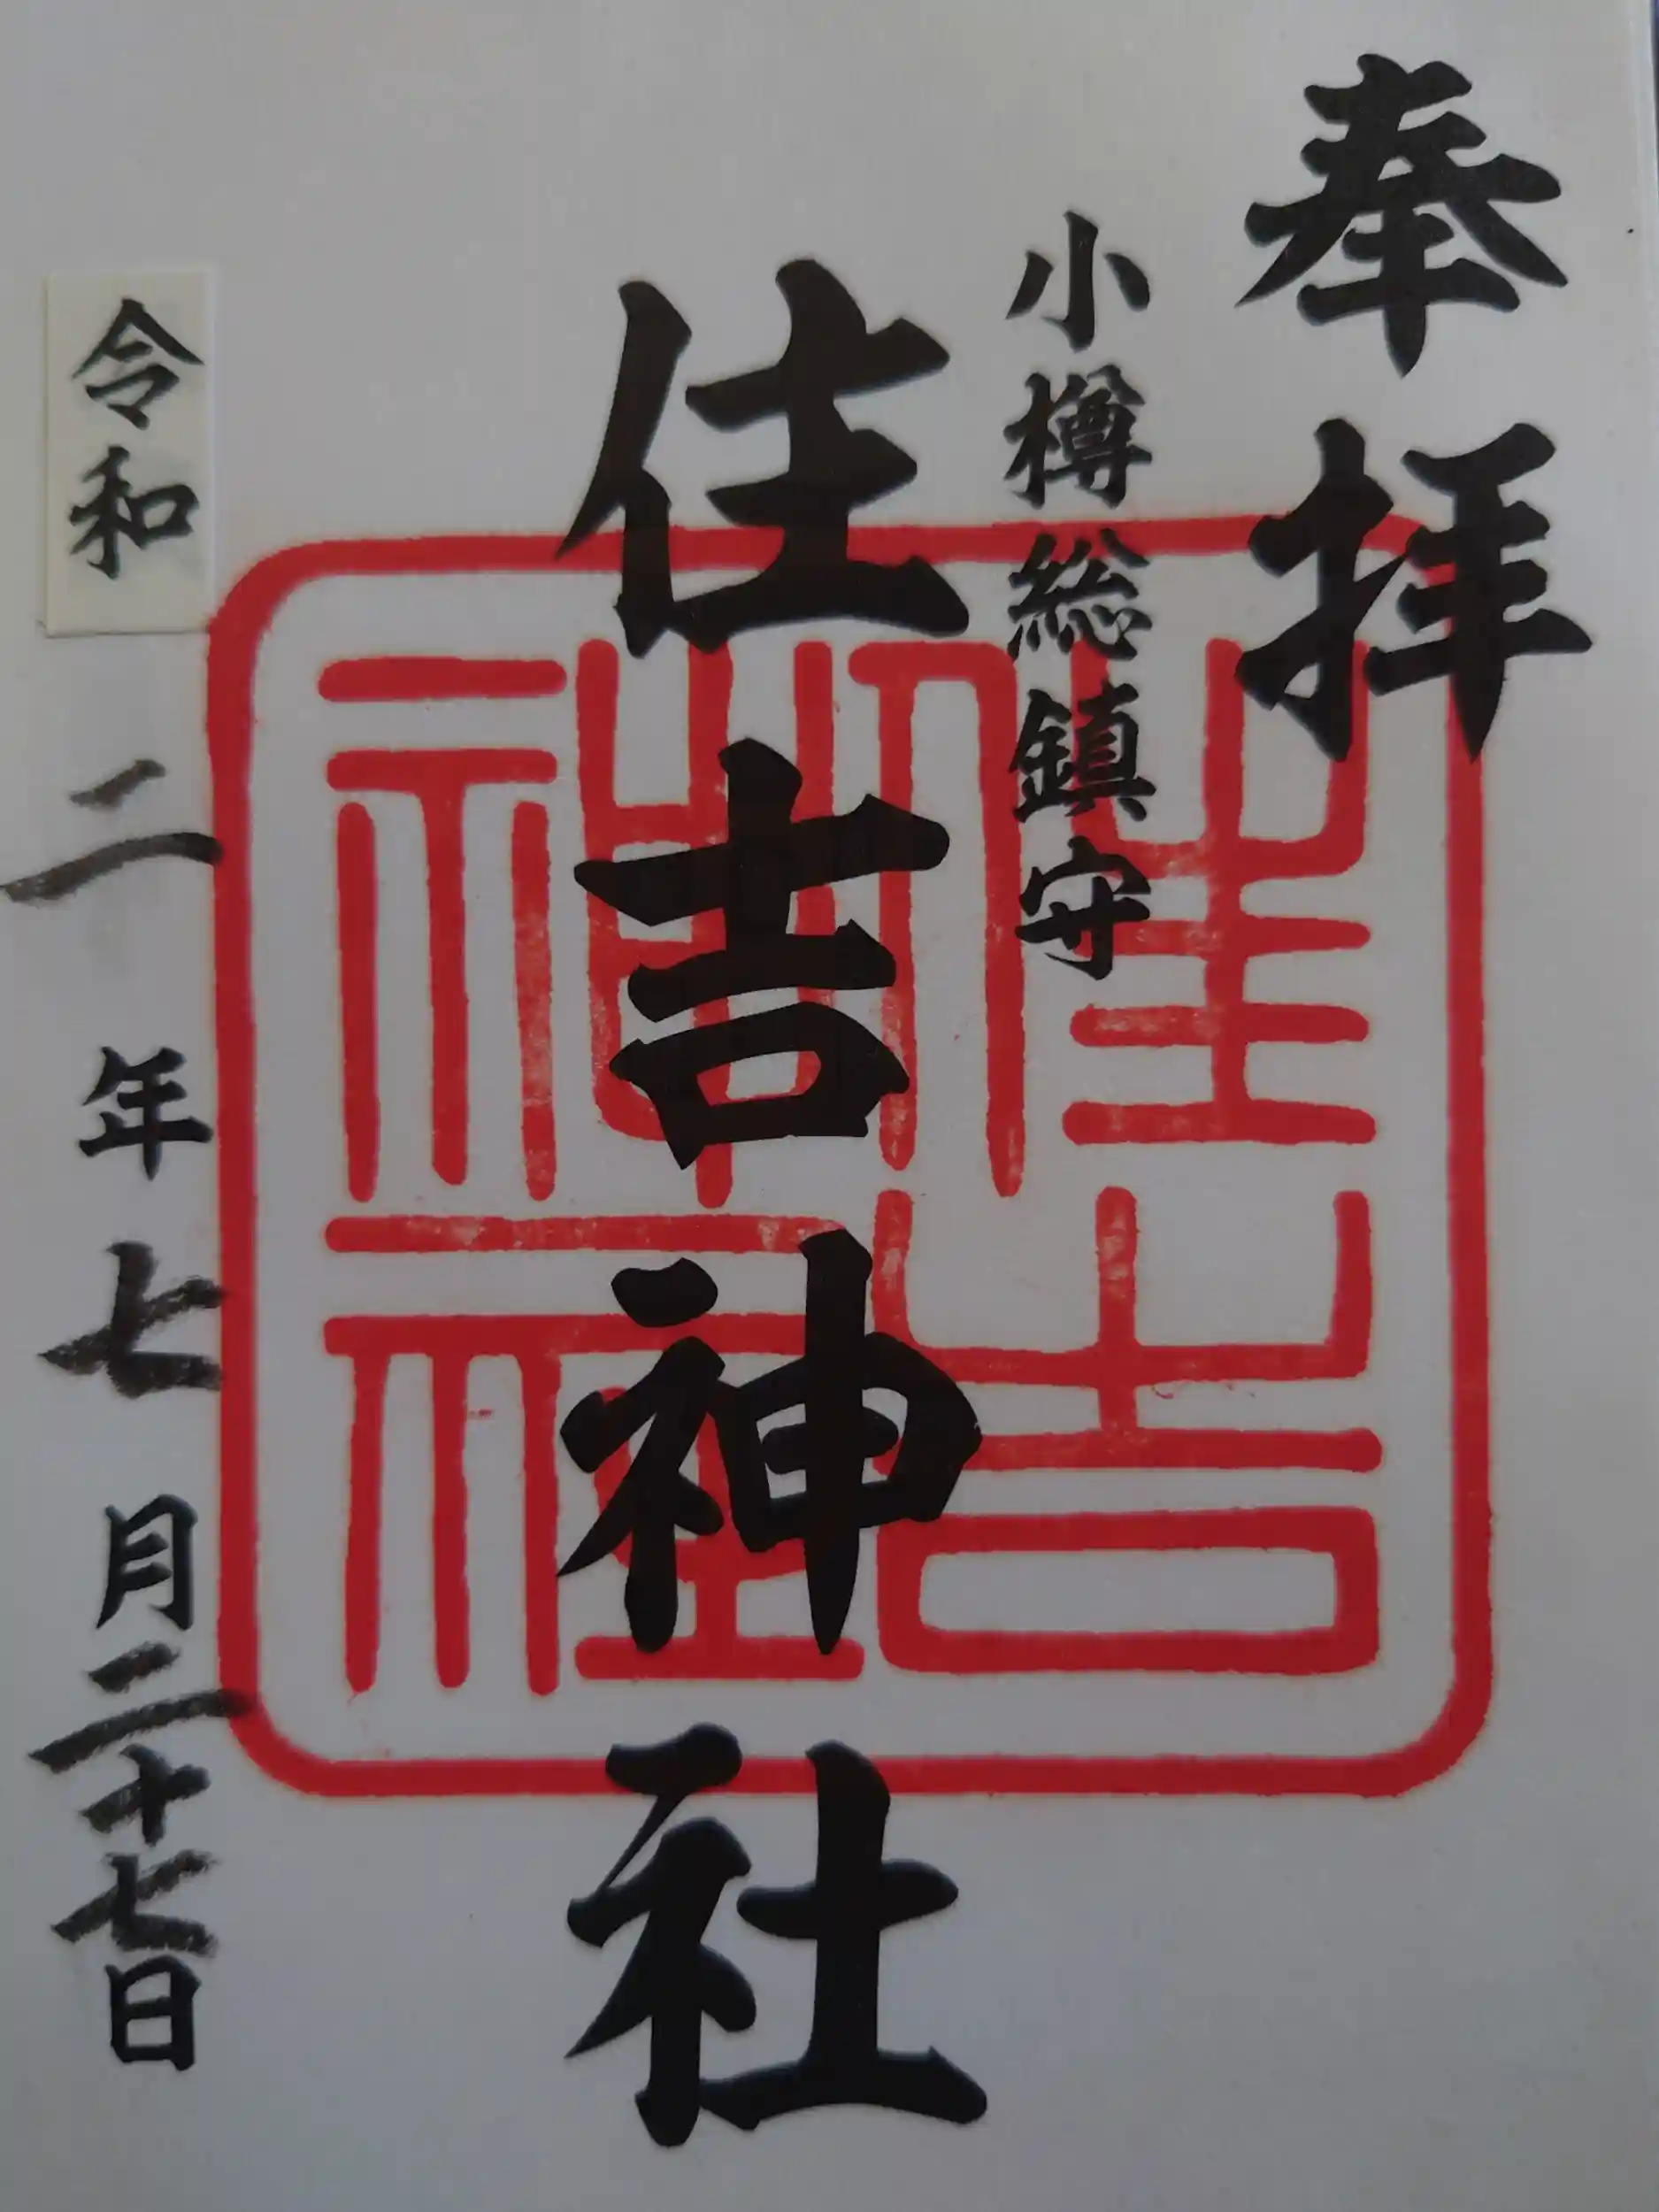 奉拝
小樽総鎮守
住吉神社
住吉神社
令和二年七月二十七日